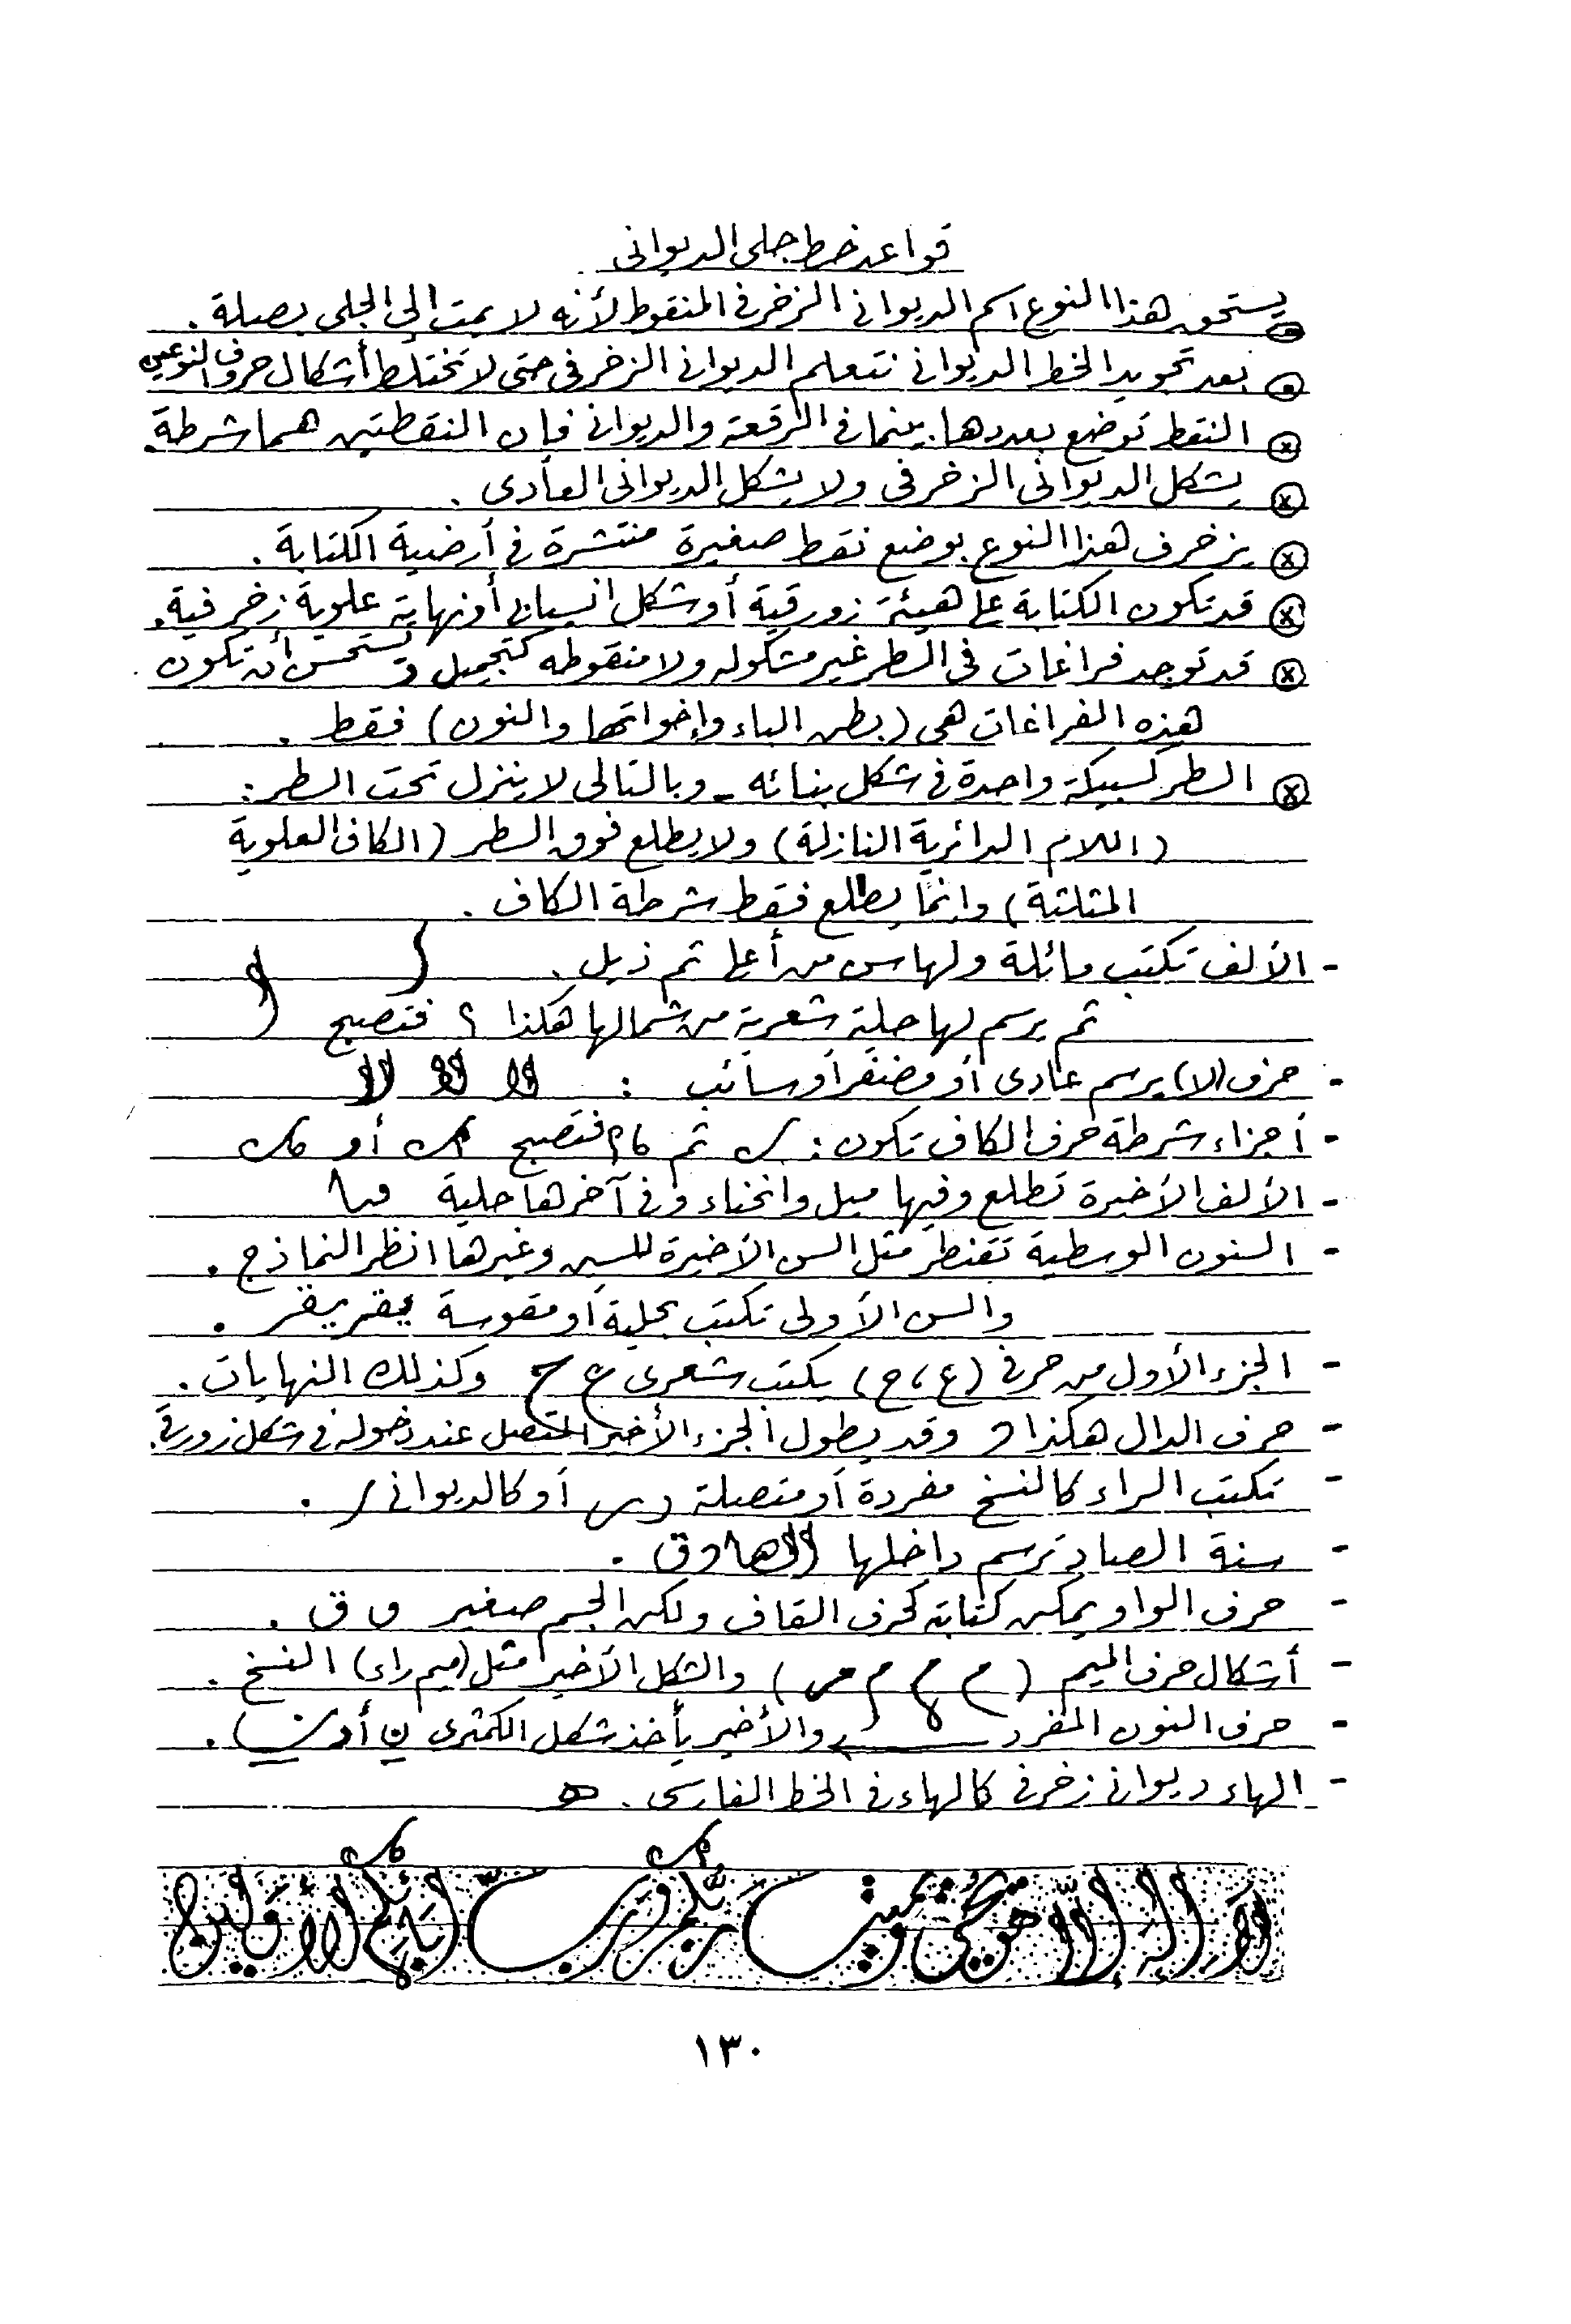 قواعد خط جلى الديوانى
يستحق هذا النوع اسم الديوانى الزخرفى المنقوط لأنه لا يمت إلى الجلى بصلة .
بعد تجويد الخط الديوانى نتعلم الديوانى الزخرفى حتى لا تختلط أشكال حروف النوعين
النقط توضع بعددها . بينما فى الرقعة والديوانى فإن النقطتين هما شرطة .
يشكل الديوانى الزخرفى ولا يشكل الديوانى العادى .
يزخرف هذا النوع بوضع نقط صغيرة منتشرة فى أرضية الكتابة .
قد تكون الكتابة على هيئة زورقية أو شكل انسيابى أو نهاية علوية زخرفية .
قد توجد فراغات فى السطر غير مشكوله ولا منقوطه كتجميل ويستحسن أن تكون
هذه الفراغات هى ( بطن الباء وإخواتها والنون ) فقط .
السطر كسبيكة واحدة فى شكل بنائه - وبالتالى لا ينزل تحت السطر :
( اللام الدائرية النازلة ) ولا يطلع فوق السطر ( الكاف العلوية
المثلثة ) وإنما يطلع فقط شرطة الكاف .
- الألف تكتب مائلة ولها سن من أعلى ثم ذيل .
ثم يرسم لها حلية شعرية من شمالها هكذا ؟ فتصبح
- حرف (لا) يرسم عادى أو مضفر أو سائب : لا لا لا
- أجزاء شرطة حرف الكاف تكون : ثم فتصبح أو
- الألف الأخيرة تطلع وفيها ميل وانحناء وفى آخرها حلية
- السنون الوسطية تقنطر مثل السن الأخيرة للسين وغيرها انظر النماذج .
والسن الأولى تكتب بحلية أو مقوسة .
- الجزء الأول من حرفى ( ع ، ح ) يكتب شعرى ع ح وكذلك النهايات .
- حرف الدال هكذا وقد يطول الجزء الأخير المتصل عند دخوله فى شكل زورقى .
- تكتب الراء كالنسخ مفردة أو متصلة ر أو كالديوانى ر .
- سنة الصاد ترسم داخلها .
- حرف الواو يمكن كتابته كحرف القاف ولكن الجسم صغير و ق .
- أشكال حرف الميم ( م م م مر ) والشكل الأخير مثل (ميم راء) النسخ .
- حرف النون المفرد والأخير يأخذ شكل الكمثرى ن أو ن .
- الهاء ديوانى زخرفى كالهاء فى الخط الفارسى . ه
لا إله إلا هو يحيي ويميت ربكم ورب آبائكم الأولين
١٣٠